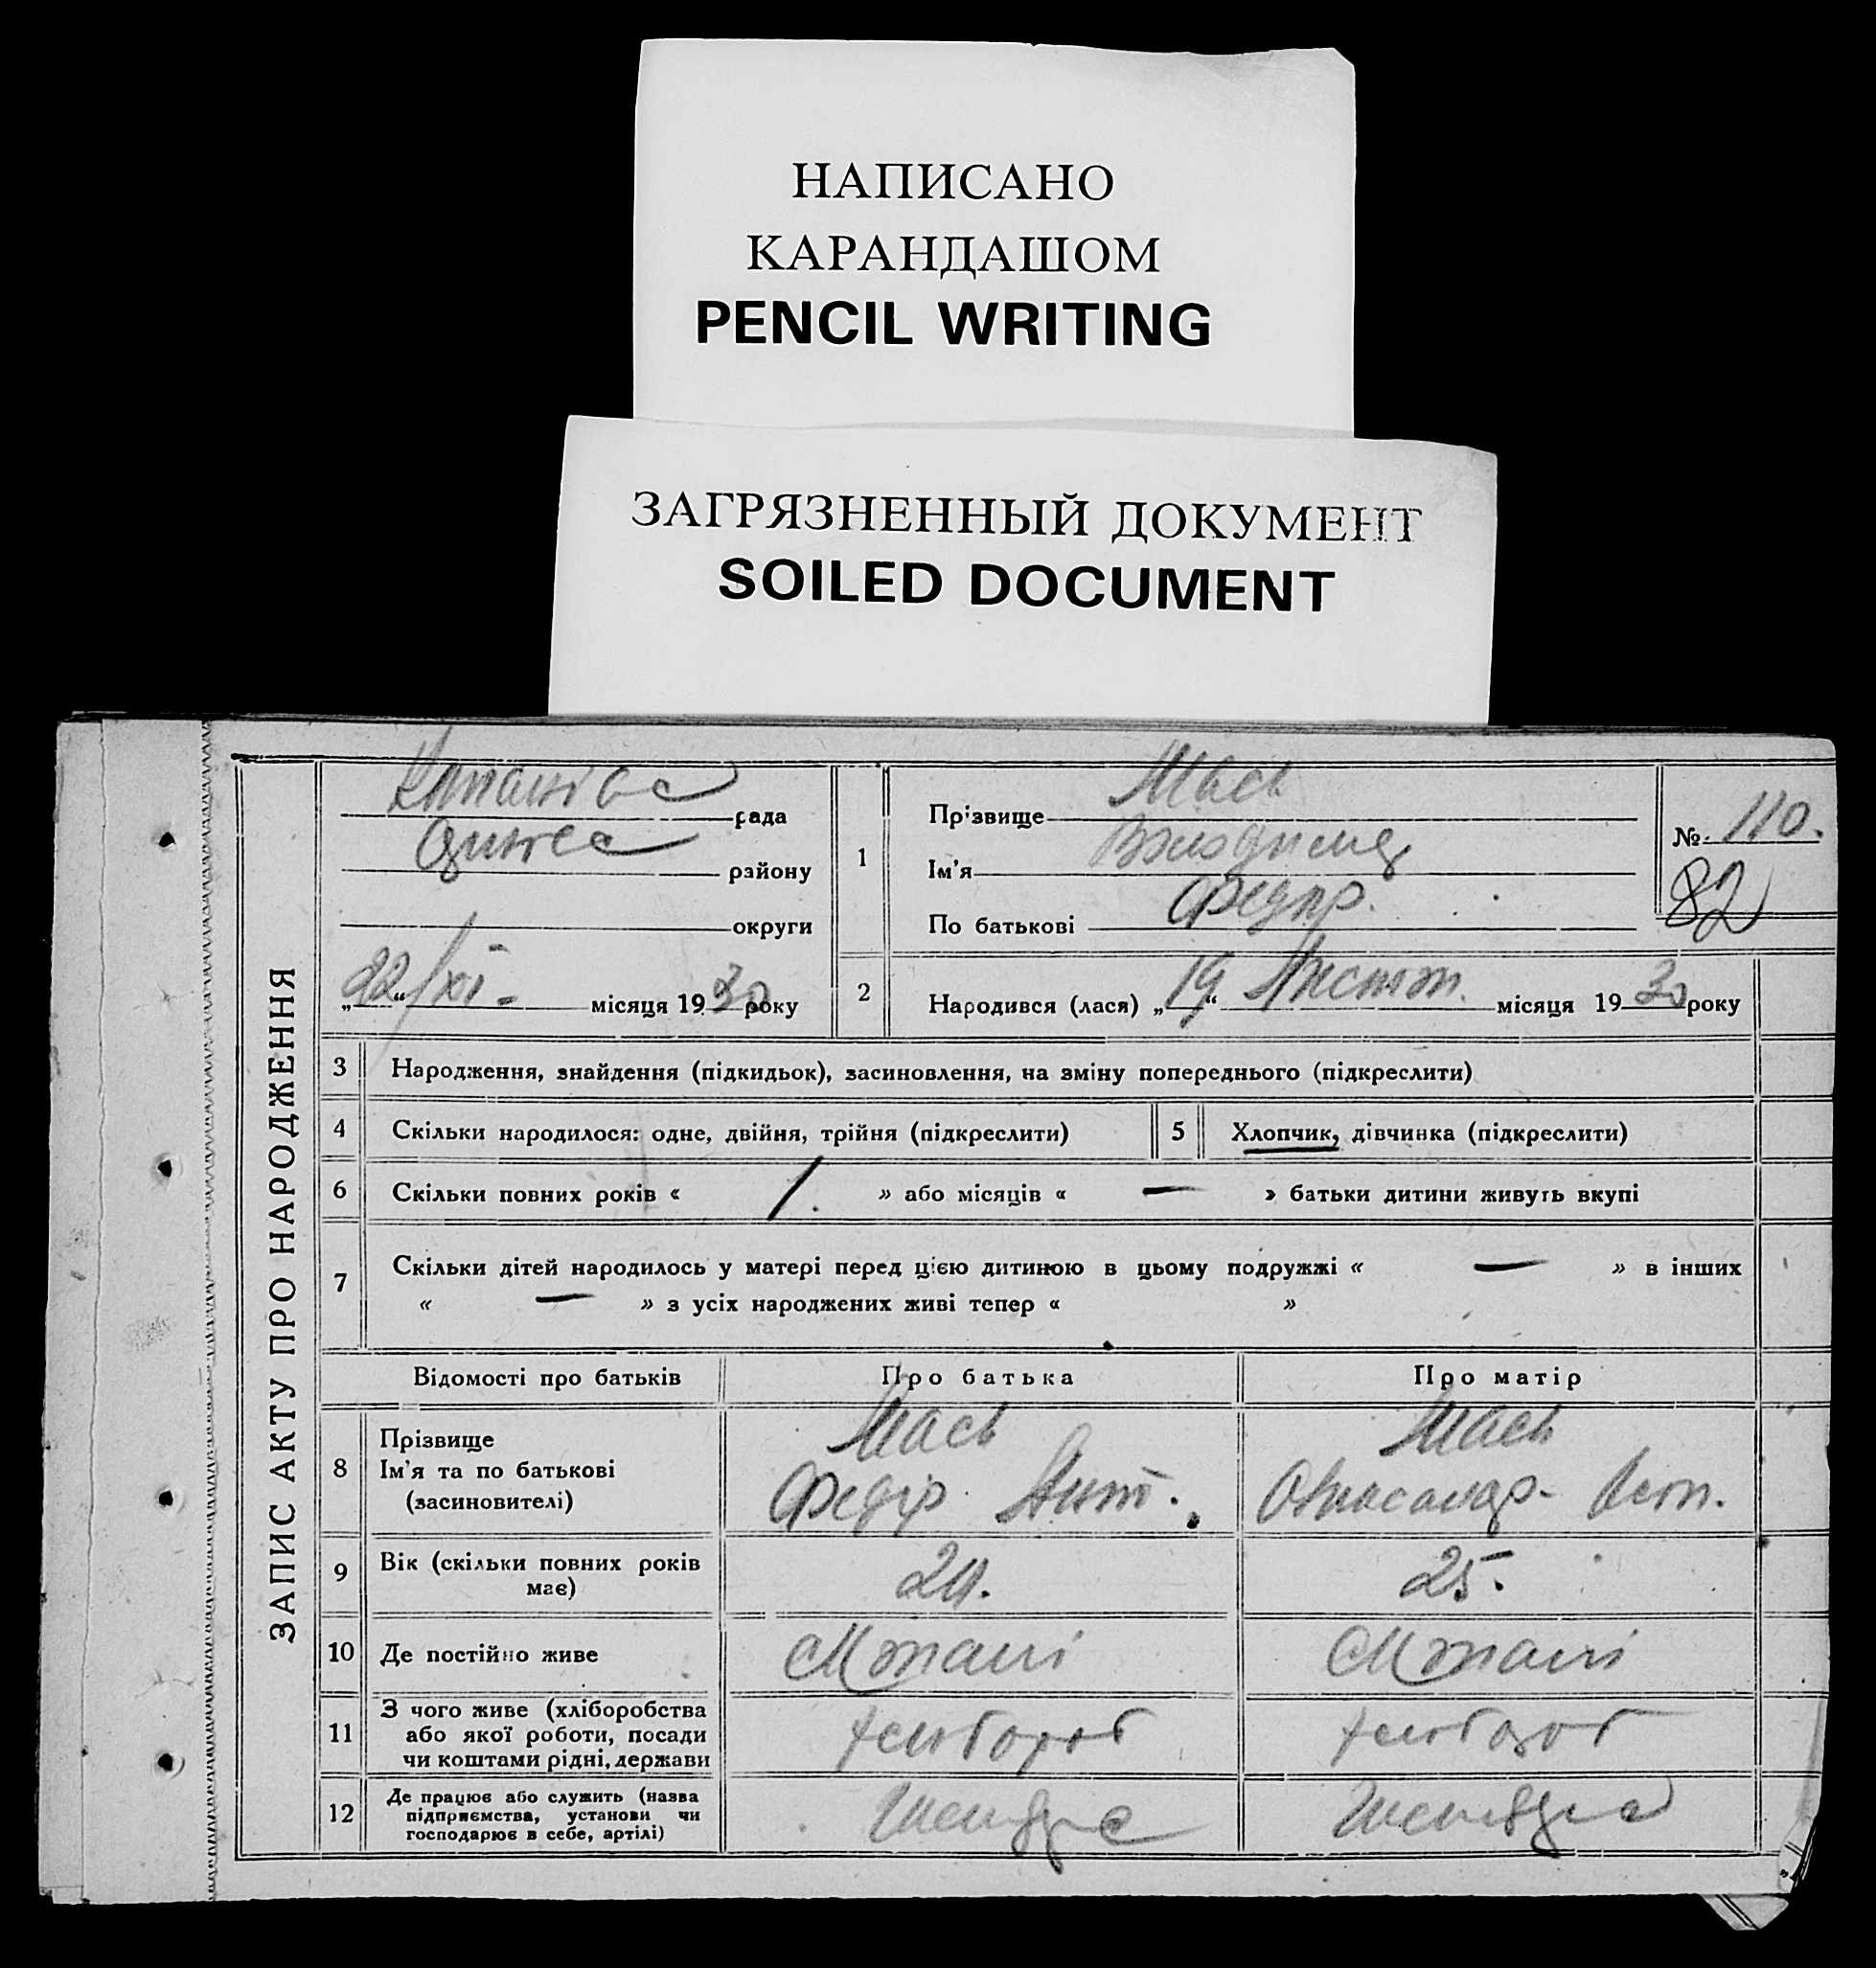 НАПИСАНО
КАРАНДАШОМ
PENCIL WRITING
ЗАГРЯЗНЕННЫЙ ДОКУМЕНТ
SOILED DOCUMENT
ЗАПИС АКТУ ПРО НАРОДЖЕННЯ
рада
району
округи
„22“/XI- місяця 1930 року
1
Прізвище Мась
Ім'я
По батькові Федор.
№ 110.
82
2
Народився (лася) „19“ Листоп. місяця 1930 року
3 Народження, знайдення (підкидьок), засиновлення, на зміну попереднього (підкреслити)
4 Скільки народилося: одне, двійня, трійня (підкреслити)
5 Хлопчик, дівчинка (підкреслити)
6 Скільки повних років « 1. » або місяців « — » батьки дитини живуть вкупі
7 Скільки дітей народилось у матері перед цією дитиною в цьому подружжі « — » в інших
« — » з усіх народжених живі тепер « »
Відомості про батьків Про батька Про матір
8 Прізвище
Ім'я та по батькові
(засиновителі)
Мась
Федір Ант.
Мась
9 Вік (скільки повних років
має)
24.
25.
10 Де постійно живе
11 З чого живе (хліборобства
або якої роботи, посади
чи коштами рідні, держави
хлібороб
хлібороб
12 Де працює або служить (назва
підприємства, установи чи
господарює в себе, артілі)